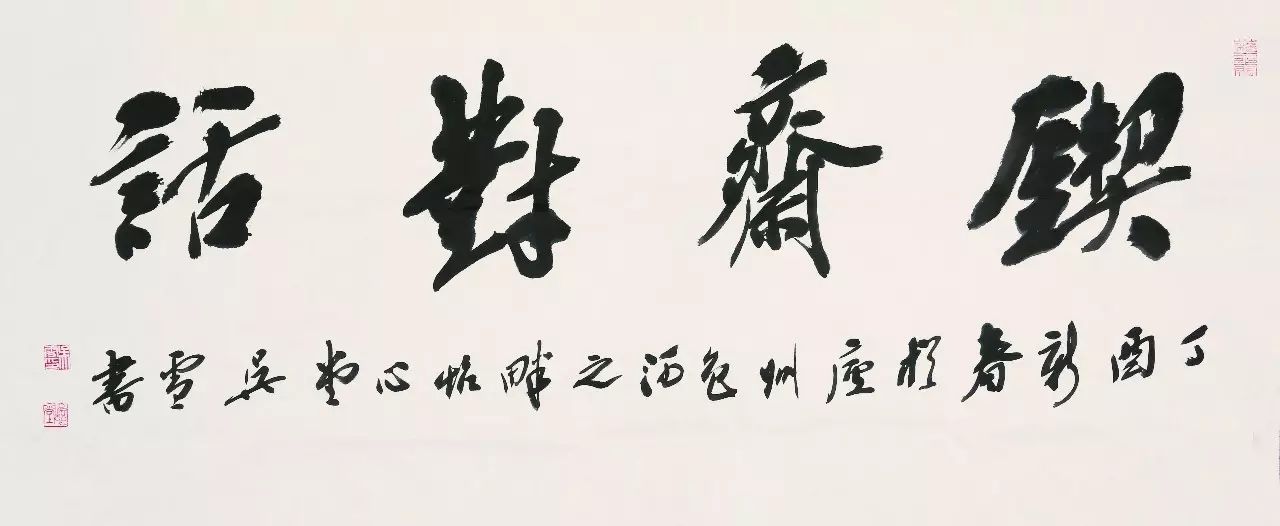 鍥齋對話
丁酉新春於廬州包河之畔怡心堂吳雪書